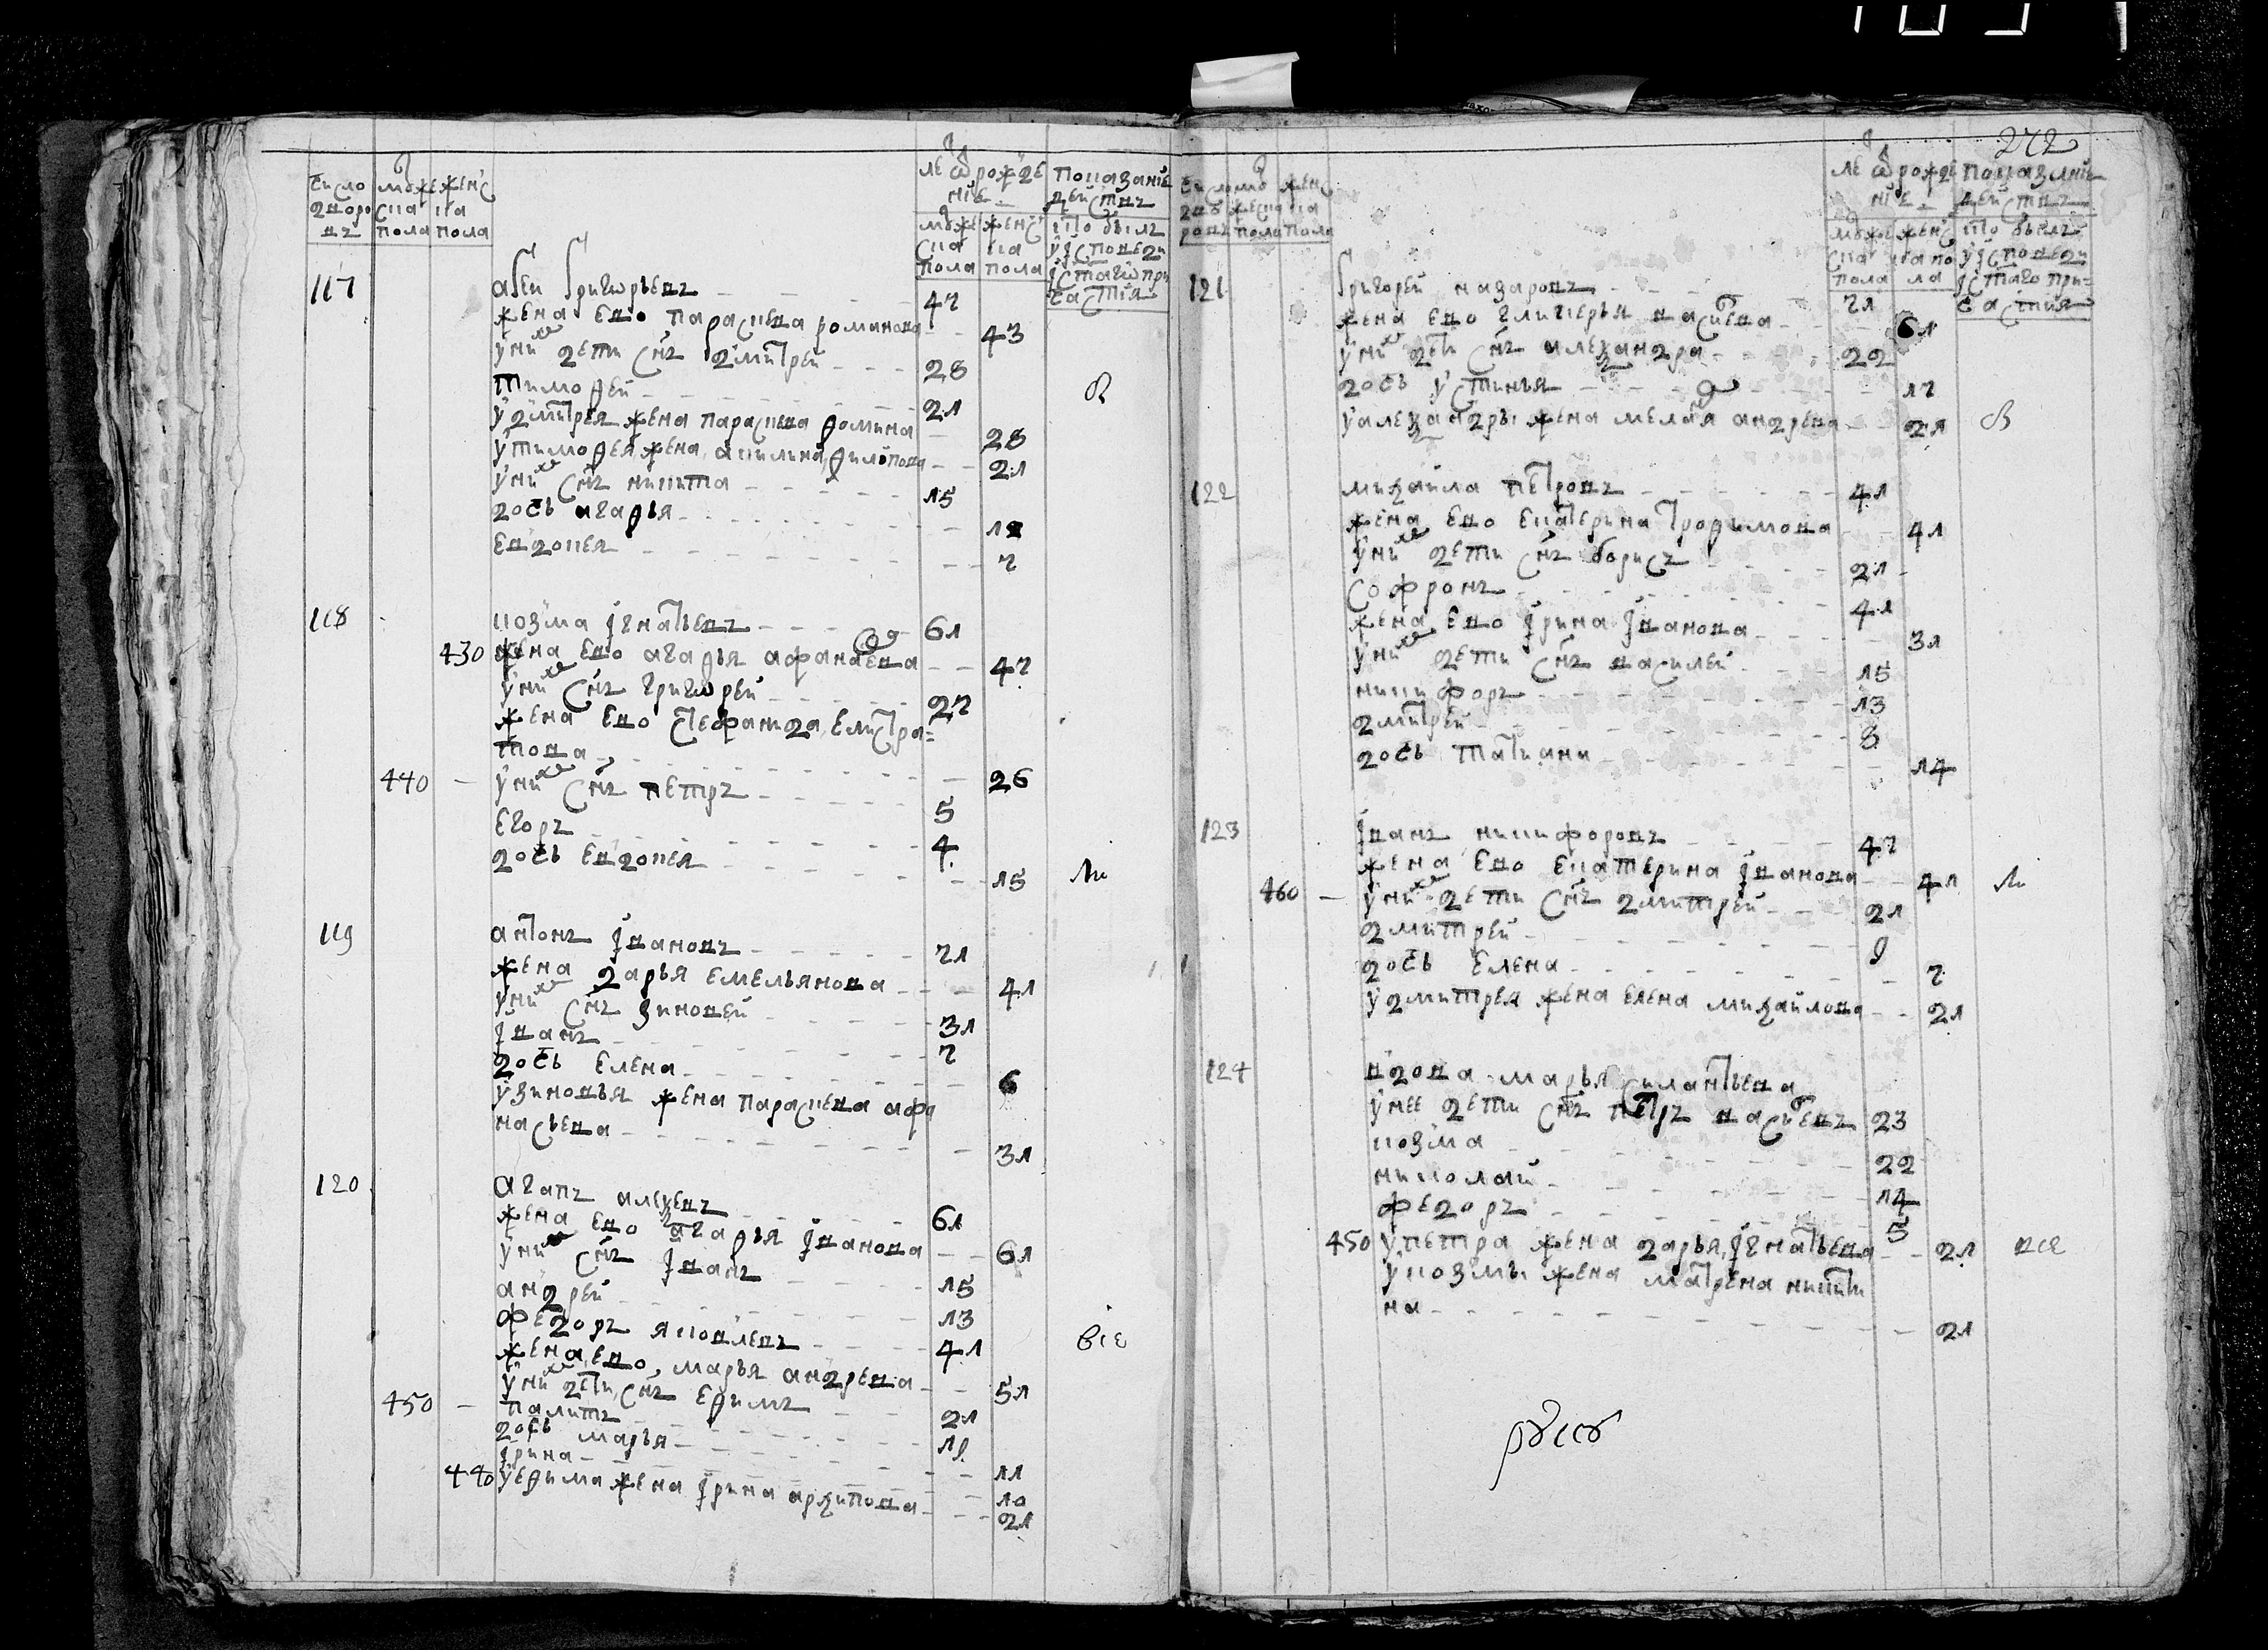 число дворовъ
мужеска пола
женска пола
лета ѿ рождения
мужеска пола
женска пола
показание действъ
кто былъ у исповеди
и стаго причастия
117 агей григорьевъ 47
жена ево параскева романова 43
у них дети снъ дмитрей 28
тимофей 21
у дмитрея жена параскева фомина 28
у тимофея жена акилина филипова 21
у них снъ никита 15
дочь агафья 12
евдокея 7
118 козма игнатьевъ 61
430 жена ево агафья афанасева 47
у них снъ григорей 27
жена ево стефанида елистра=
това 26
440 у них снъ петръ 5
егоръ 4
дочь евдокея 15
119 антонъ ивановъ 71
жена дарья емельянова 41
у них снъ зиновей 31
иванъ 7
дочь елена 6
у зиновья жена параскева афа
насьева 31
120 агапъ алеѯевъ 61
жена ево агафья иванова 61
у них снъ иванъ 15
андрей 13
федоръ яковлевъ 41
все
жена ево марья андрева 51
у них дети снъ ефимъ 21
450 палитъ 19
дочь марья 11
ирина 10
440 у ефима жена ирина архипова 21
272
число дворовъ
мужеска пола
женска пола
лета ѿ рождения
мужеска пола
женска пола
показание действъ
кто былъ у исповеди
и стаго причастия
121 григорей назаровъ 71
жена ево гликерья васильева 61
у них дети снъ алеѯандра 22
дочь устинья 17
у алеѯандры жена меланья андрева 21
122 михаила петровъ 41
жена ево екатерина трофимова 41
у них дети снъ борисъ 21
софронъ 41
жена ево ирина иванова 31
у них дети снъ василей 15
никифоръ 13
дмитрей 8
дочь татиана 14
123 иванъ никифоровъ 47
жена ево екатерина иванова 41
460 у них дети снъ дмитрей 21
дмитрей 9
дочь елена 7
у дмитрея жена елена михайлова 21
124 вдова марья силантьева
у нее дети снъ петръ васильевъ 23
козма 22
николай 14
федоръ 5
450 у петра жена дарья игнатьева 21 все
у козмы жена матрена никити
на 21